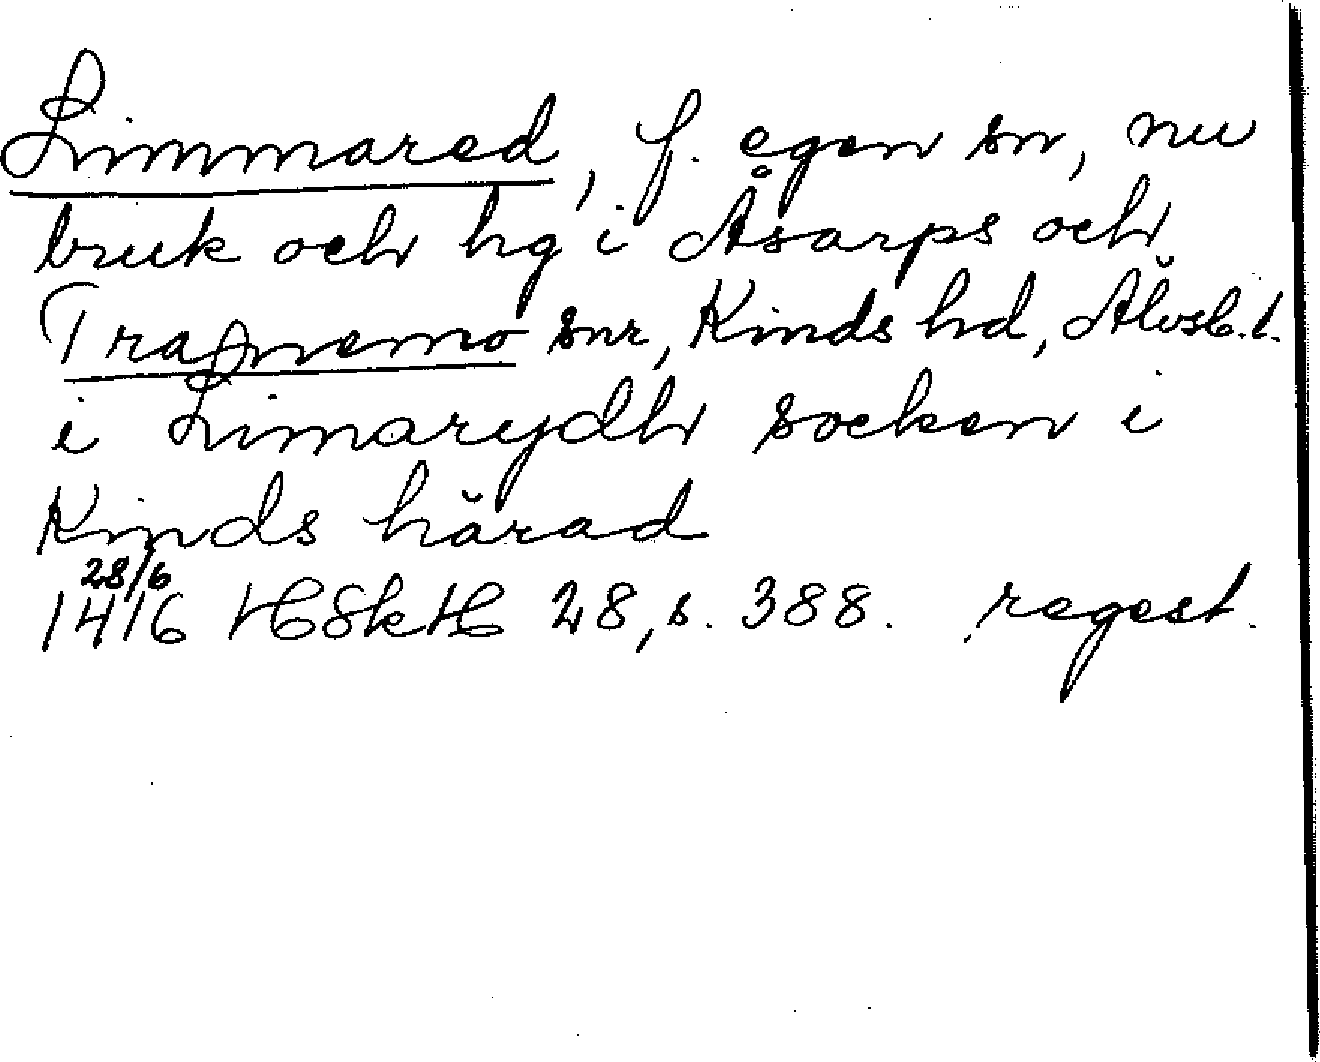 Limmared, f. egen sn, nu
bruk och hg i Åsarps och
Tranemo snr, Kinds hd, Älvsb. l.
i Limarydh socken i
Kinds härad
28/6
1416 HSkH 28, s. 388. regest.